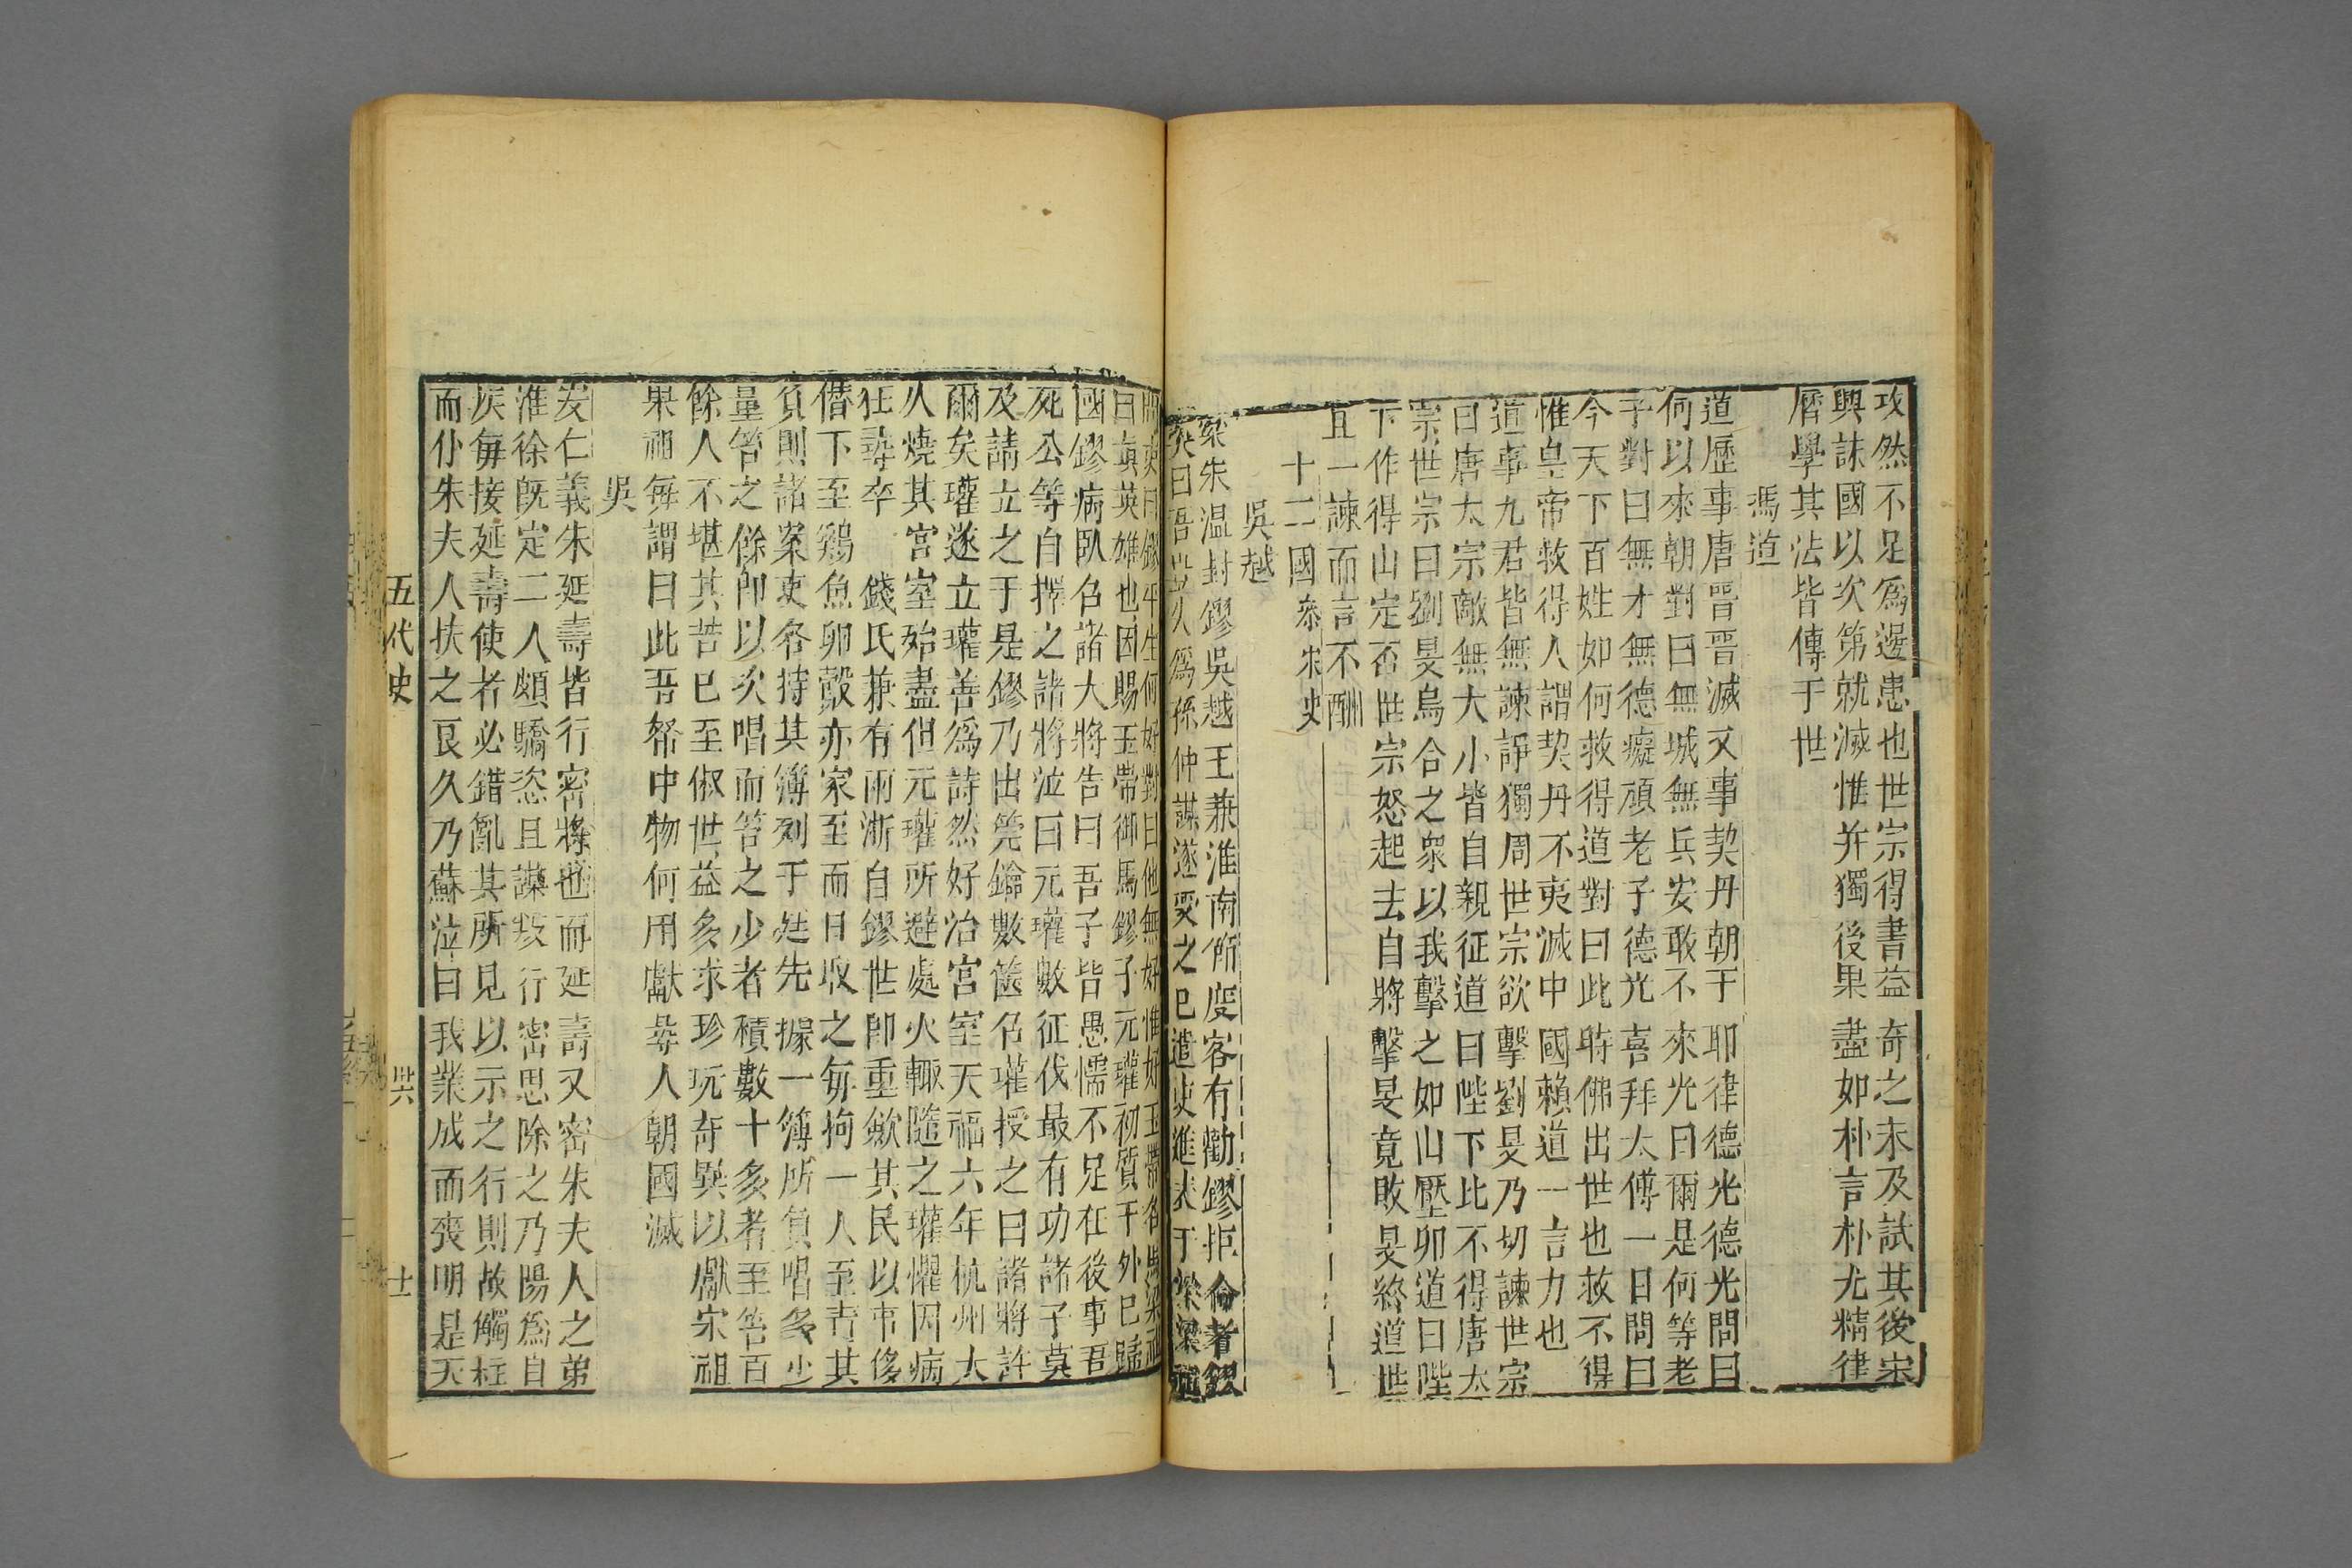 攻然不足爲邊患也世宗得書益奇之未及試其後宋
興誅國以次第就滅惟并獨後果盡如朴言朴尤精律
曆學其法皆傳于世
馮道
道歷事唐晋晋滅又事契丹朝于耶律德光德光問曰
何以來朝對曰無城無兵安敢不來光曰爾是何等老
子對曰無才無德癡頑老子德光喜拜太傅一日問曰
今天下百姓如何救得道對曰此時佛出世也救不得
惟皇帝救得人謂契丹不夷滅中國賴道一言力也
道事九君皆無諫諍獨周世宗欲擊劉旻乃切諫世宗
曰唐太宗敵無大小皆自親征道曰陛下比不得唐太
宗世宗曰劉旻烏合之衆以我擊之如山壓卵道曰陛
下作得山定否世宗怒起去自將擊旻竟敗旻終道世
且一諫而言不酬
十二國 叅宋史
吳越
梁朱温封鏐吳越王兼淮南節度客有勸鏐拒命者鏐
笑曰吾豈久爲孫仲謀遂受之已遣使進表于梁梁祖
問吏曰鏐平生何好對曰他無好惟好玉帶名馬梁祖
曰真英雄也因賜玉帶御馬鏐子元瓘初質于外已歸
國鏐病臥召諸大將告曰吾子皆愚懦不足任後事吾
死公等自擇之諸將泣曰元瓘數征伐最有功諸子莫
及請立之于是鏐乃出筦鑰數篋召瓘授之曰諸將許
爾矣瓘遂立瓘善爲詩然好治宮室天福六年杭州大
火燒其宮室殆盡但元瓘所避處火輙隨之瓘懼因病
狂尋卒 錢氏兼有兩浙自鏐世即重歛其民以事侈
僭下至鷄魚卵鷇亦家至而日取之毎拘一人至責其
負則諸案吏各持其簿列于廷先據一簿所負唱多少
量笞之餘即以次唱而笞之少者積數十多者至笞百
餘人不堪其苦已至俶世益多求珍玩奇異以獻宋祖
果祖毎謂曰此吾帑中物何用獻尋人朝國滅
吳
安仁義朱延壽皆行密將也而延壽又密朱夫人之弟
淮徐旣定二人頗驕恣且謀叛行密思除之乃陽爲自
疾毎接延壽使者必錯亂其所見以示之行則故觸柱
而仆朱夫人扶之良久乃蘇泣曰我業成而喪明是天
五代史 卌六 十一